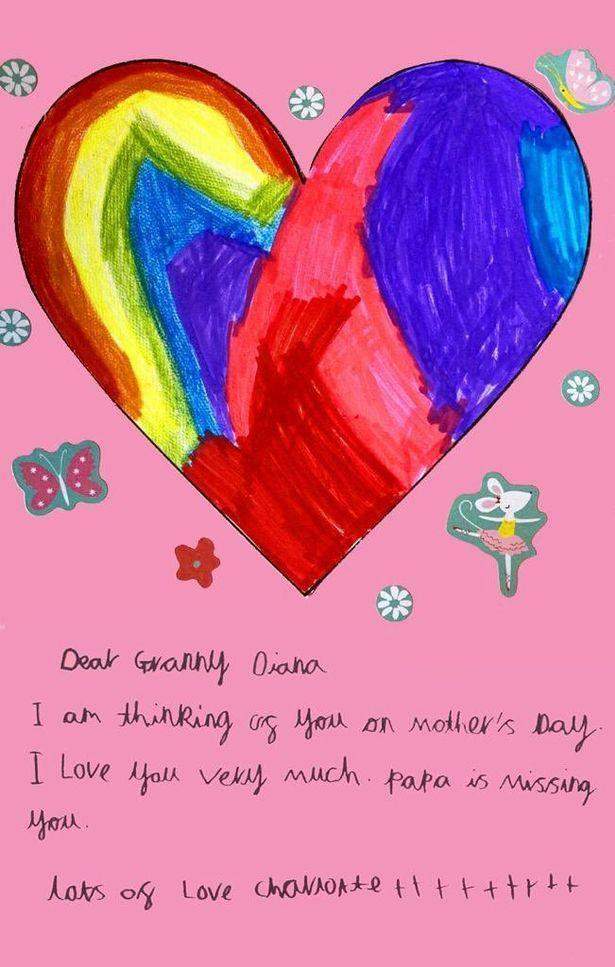 Dear Granny Diana
I am thinking of you on Mother's Day.
I Love you very much. papa is missing
you.
lots of Love charlotte +++++++++